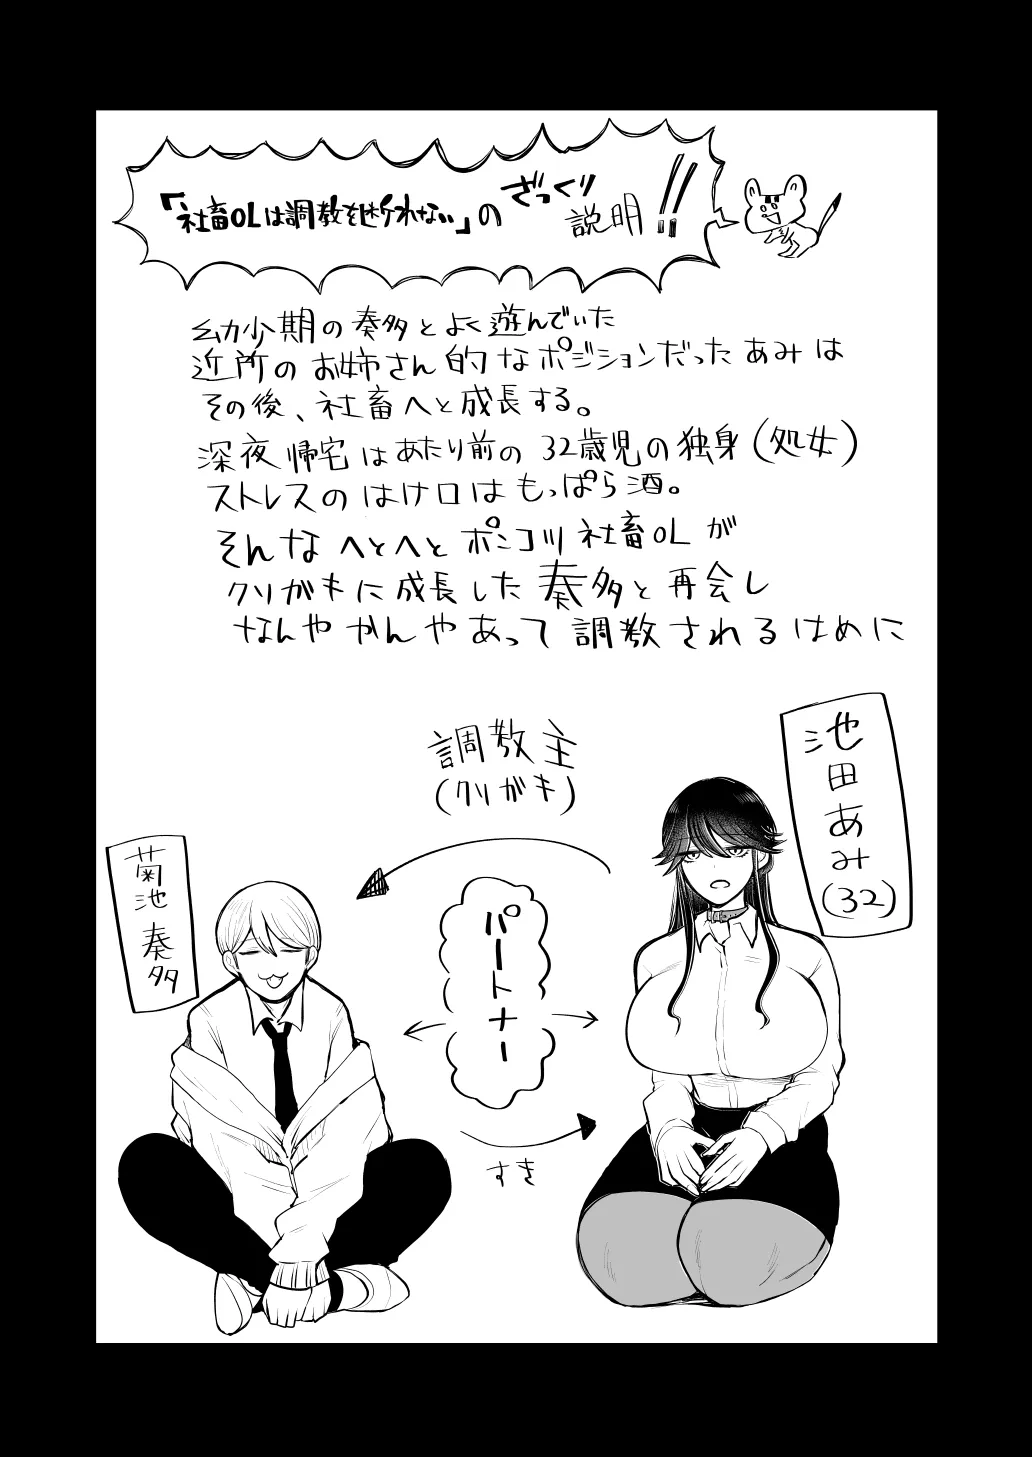 「社畜OLは調教を断れない」のざっくり説明!!
幼少期の奏多とよく遊んでいた
近所のお姉さん的なポジションだったあみは
その後、社畜へと成長する。
深夜帰宅はあたり前の32歳児の独身(処女)
ストレスのはけ口はもっぱら酒。
そんなへとへとポンコツ社畜OLが
クソガキに成長した奏多と再会し
なんやかんやあって調教されるはめに
調教主
(クソガキ)
池田あみ
(32)
菊池奏多
パートナー
すき